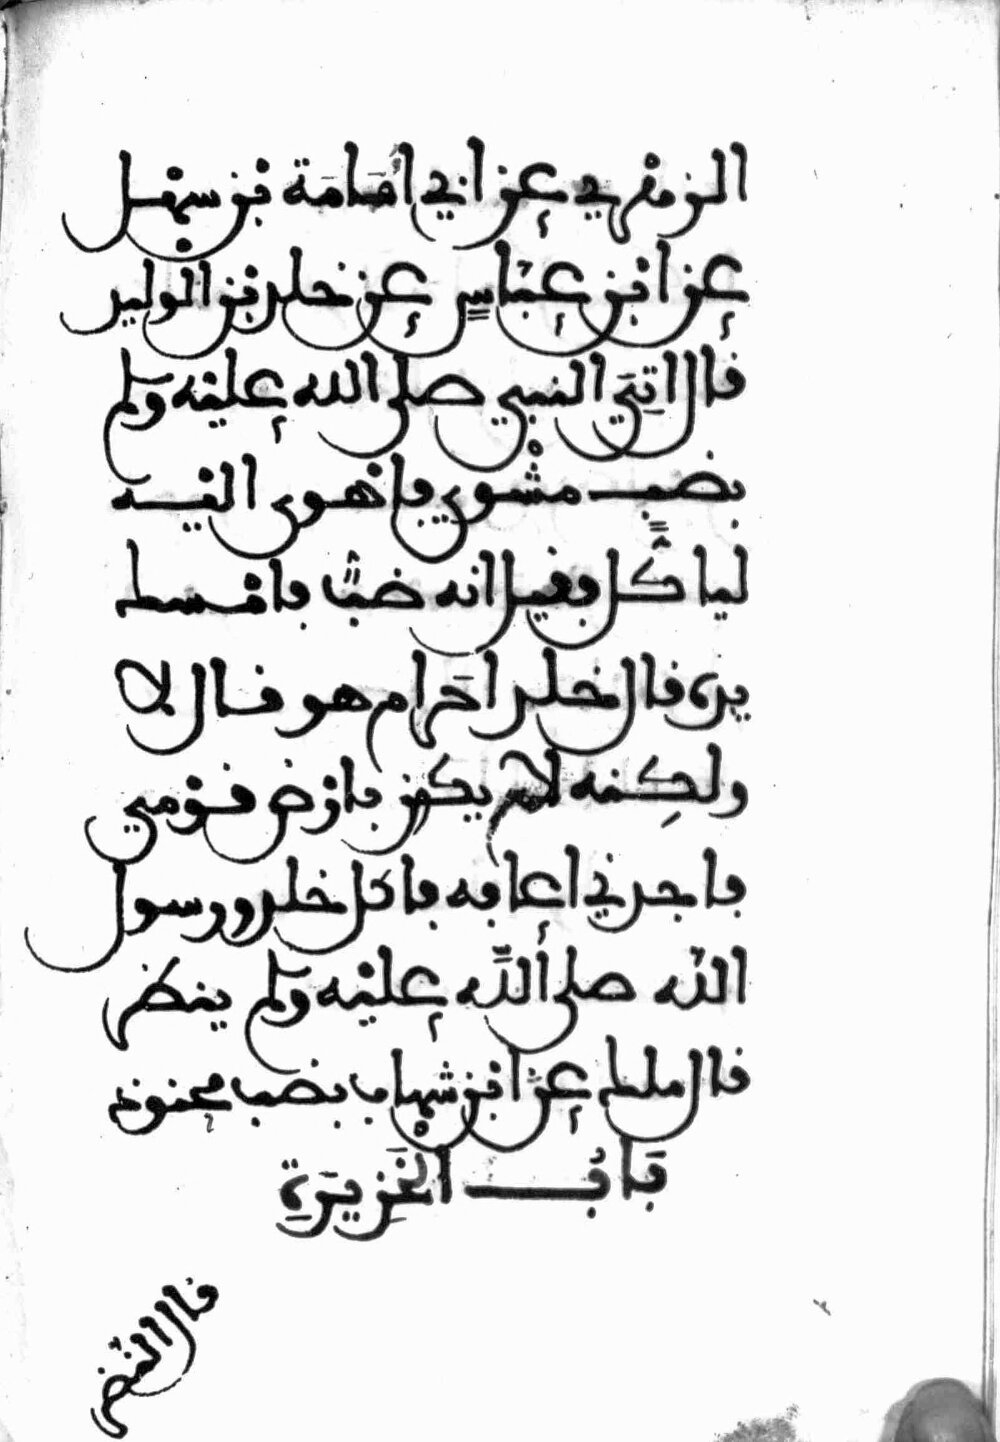 الزهري عن ابي أمامة بن سهل
عن ابن عباس عن خلد بن الوليد
قال اتي النبي صلى الله عليه وسلم
بضب مشوي فاهوى اليه
لياكل فقيل انه ضب فامسك
يده فقال خلد احرام هو قال لا
ولكنه لا يكون بارض قومي
فاجدني اعافه فاكل خلد ورسول
الله صلى الله عليه وسلم ينظر
قال ملك عن ابن شهاب بضب محنوذ
بَابُ الخَزِيرَةِ
قال النضر